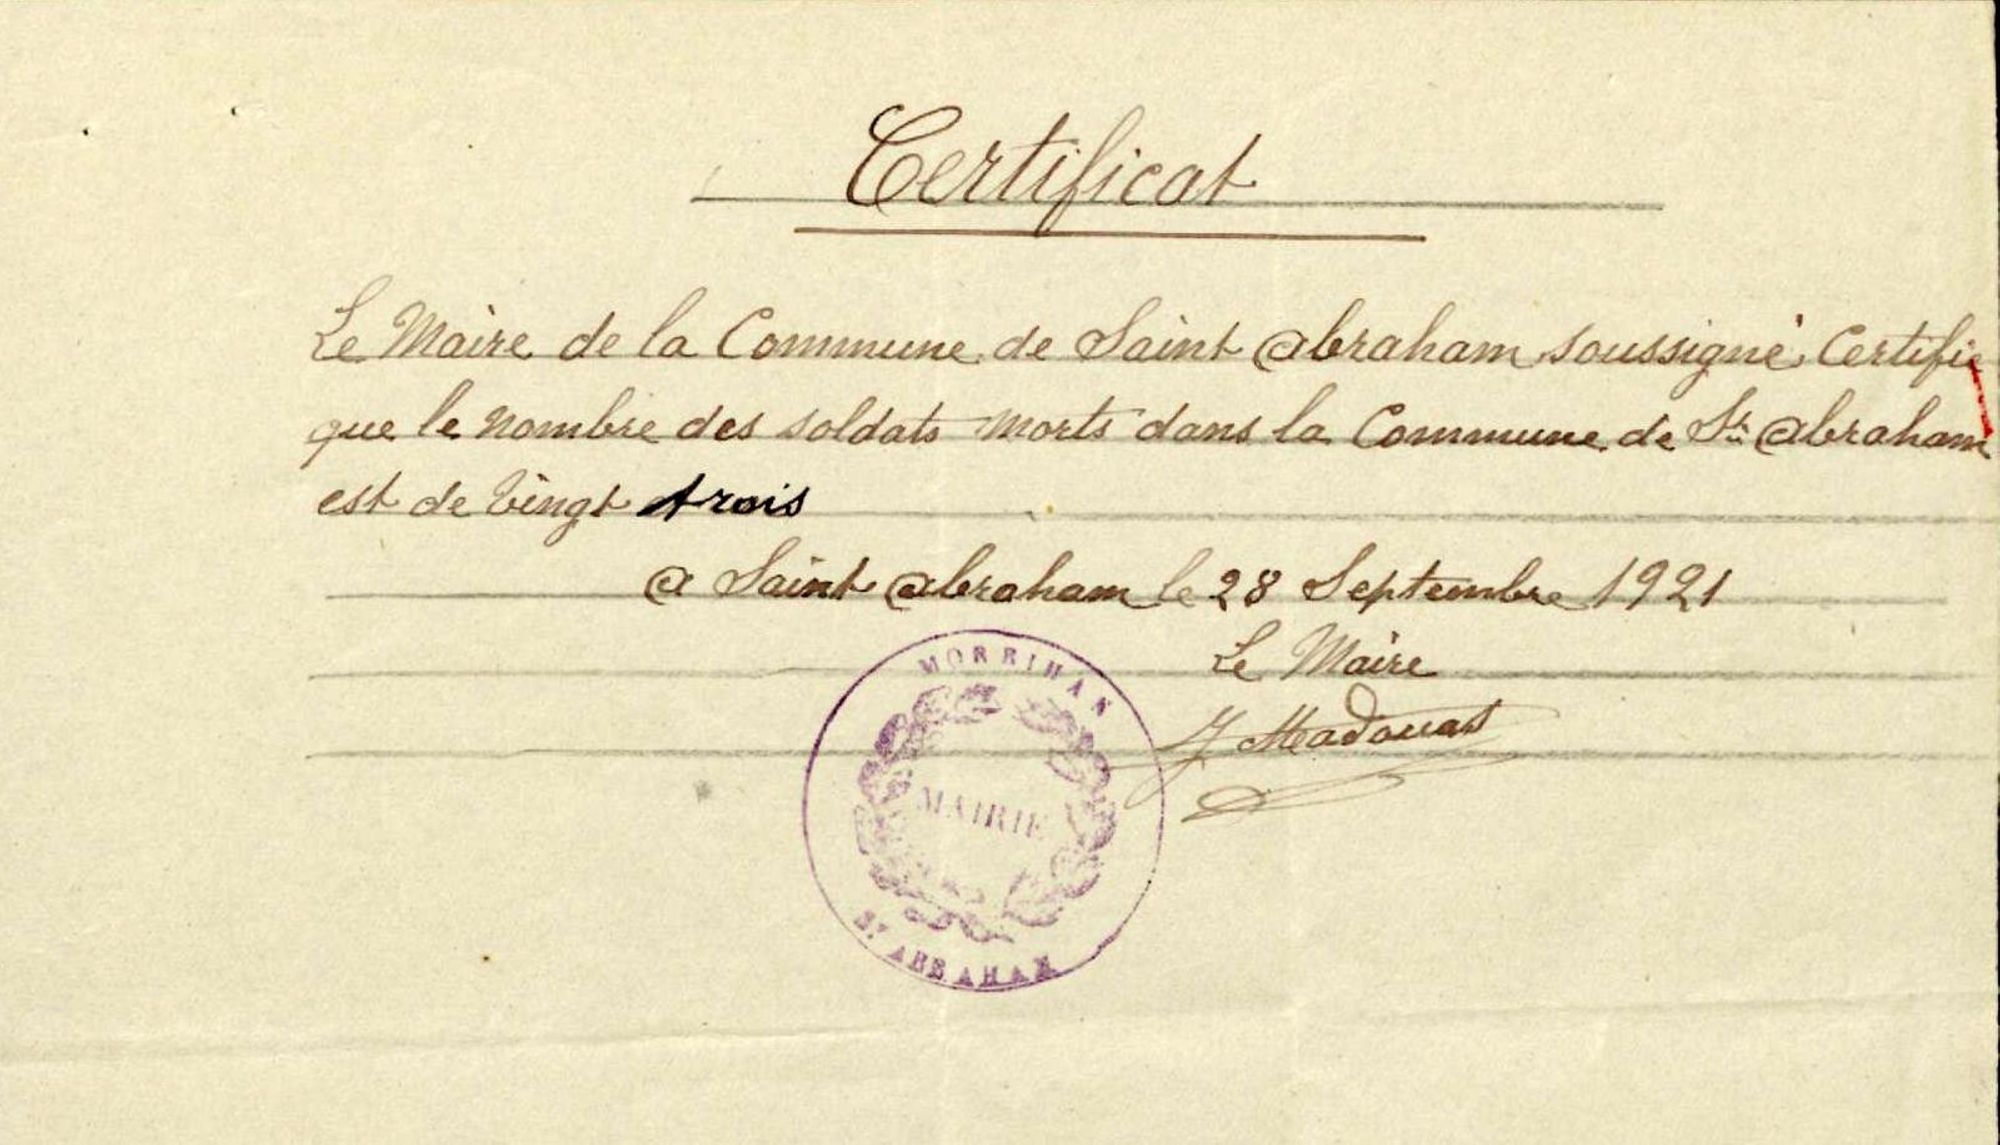 Certificat
Le Maire de la Commune de Saint Abraham soussigné Certifie
que le nombre des soldats morts dans la Commune de St Abraham
est de vingt trois
a Saint Abraham le 28 Septembre 1921
Le Maire
J Madouas
MORBIHAN
MAIRIE
ST ABRAHAM